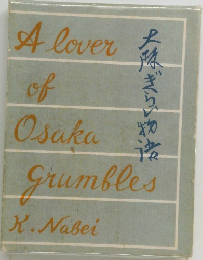 A lover
of
Osaka
Grumbles
K. Nabei
大阪ぎらい物語